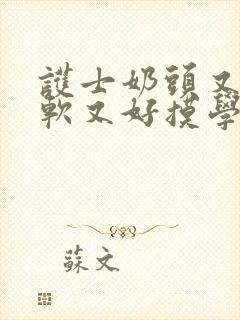 護士奶頭又
軟又好摸學
蘇文